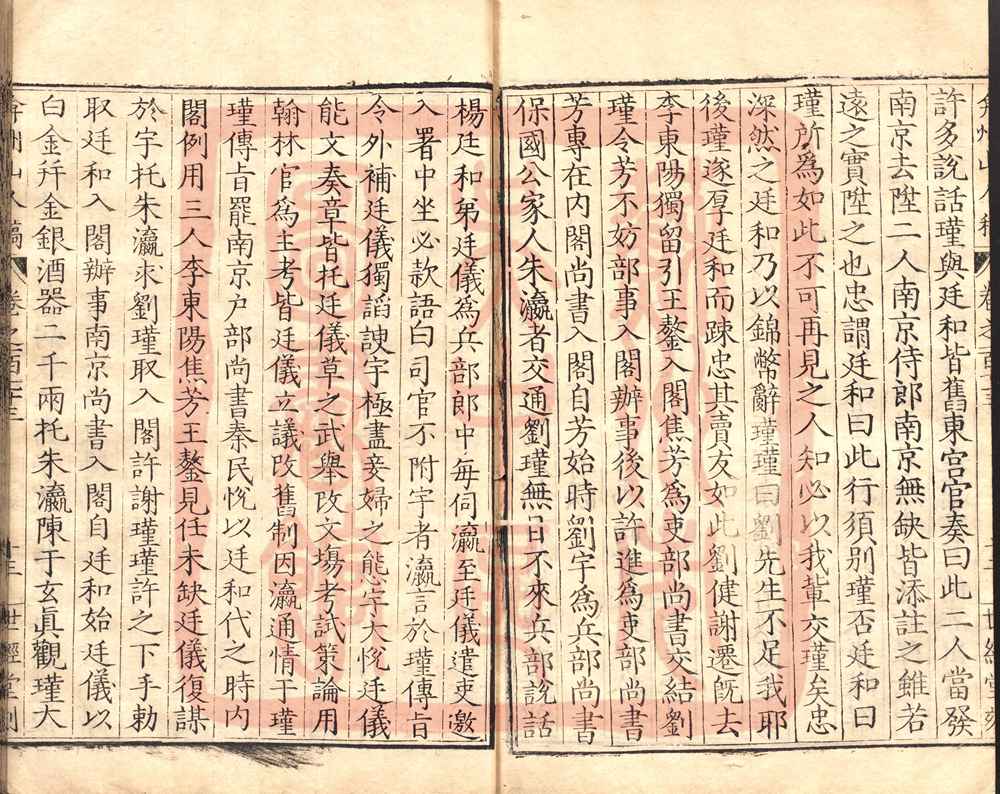 弇州山人稿 卷之一百 十三 世經堂刻
許多說話瑾與廷和皆舊東宮官奏曰此二人當發
南京去陞二人南京侍郎南京無缺皆添註之雖若
遠之實陞之也忠謂廷和曰此行須別瑾否廷和曰
瑾所爲如此不可再見之人知必以我輩交瑾矣忠
深然之廷和乃以錦幣辭瑾瑾曰劉先生不足我耶
後瑾遂厚廷和而踈忠其賣友如此劉健謝遷旣去
李東陽獨留引王鏊入閣焦芳爲吏部尚書交結劉
瑾令芳不妨部事入閣辦事後以許進爲吏部尚書
芳專在內閣尚書入閣自芳始時劉宇爲兵部尚書
保國公家人朱瀛者交通劉瑾無日不來兵部說話
楊廷和弟廷儀爲兵部郎中每伺瀛至廷儀遣吏邀
入署中坐必款語白司官不附宇者瀛言於瑾傳旨
令外補廷儀獨謟諛宇極盡妾婦之態宇大悅廷儀
能文奏章皆托廷儀草之武舉改文塲考試策論用
翰林官爲主考皆廷儀立議改舊制因瀛通情于瑾
瑾傳旨罷南京户部尚書秦民悅以廷和代之時内
閣例用三人李東陽焦芳王鏊見任未缺廷儀復謀
於宇托朱瀛求劉瑾取入閣許謝瑾瑾許之下手勅
取廷和入閣辦事南京尚書入閣自廷和始廷儀以
白金幷金銀酒器二千兩托朱瀛陳于玄眞觀瑾大
弇州山人稿 卷之一百 十三 世經堂刻